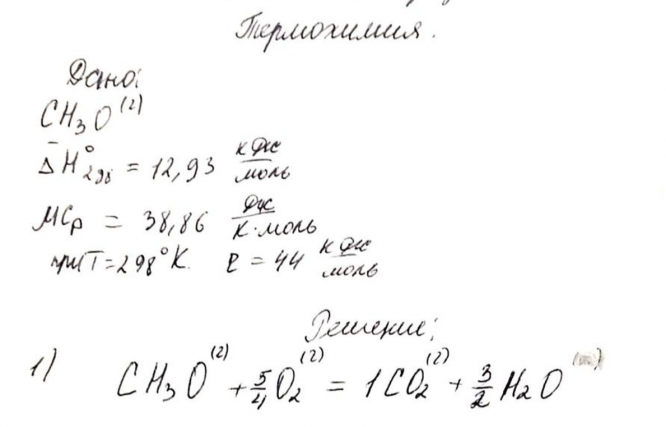 Термохимия.
Дано:
CH₃O⁽²⁾
ΔH̄°₂₉₈ = 12,93 кДж/моль
МСр = 38,86 Дж/К·моль
при T=298°К. ℓ = 44 кДж/моль
Решение;
1) CH₃O⁽²⁾ + 5/4 O₂⁽²⁾ = 1CO₂⁽²⁾ + 3/2 H₂O